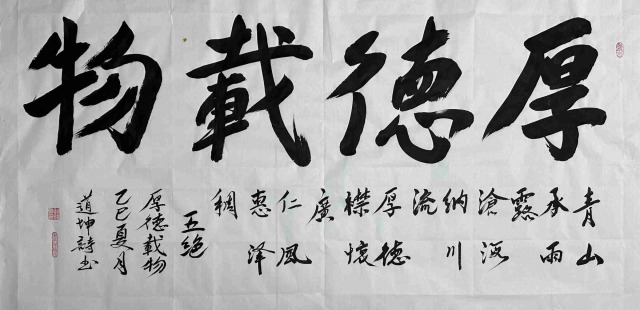 厚德載物
青山
承雨
露
滄海
納川
流
厚德
襟懷
廣
仁風
惠泽
稠
五绝
厚德載物
乙巳夏月
道坤詩书